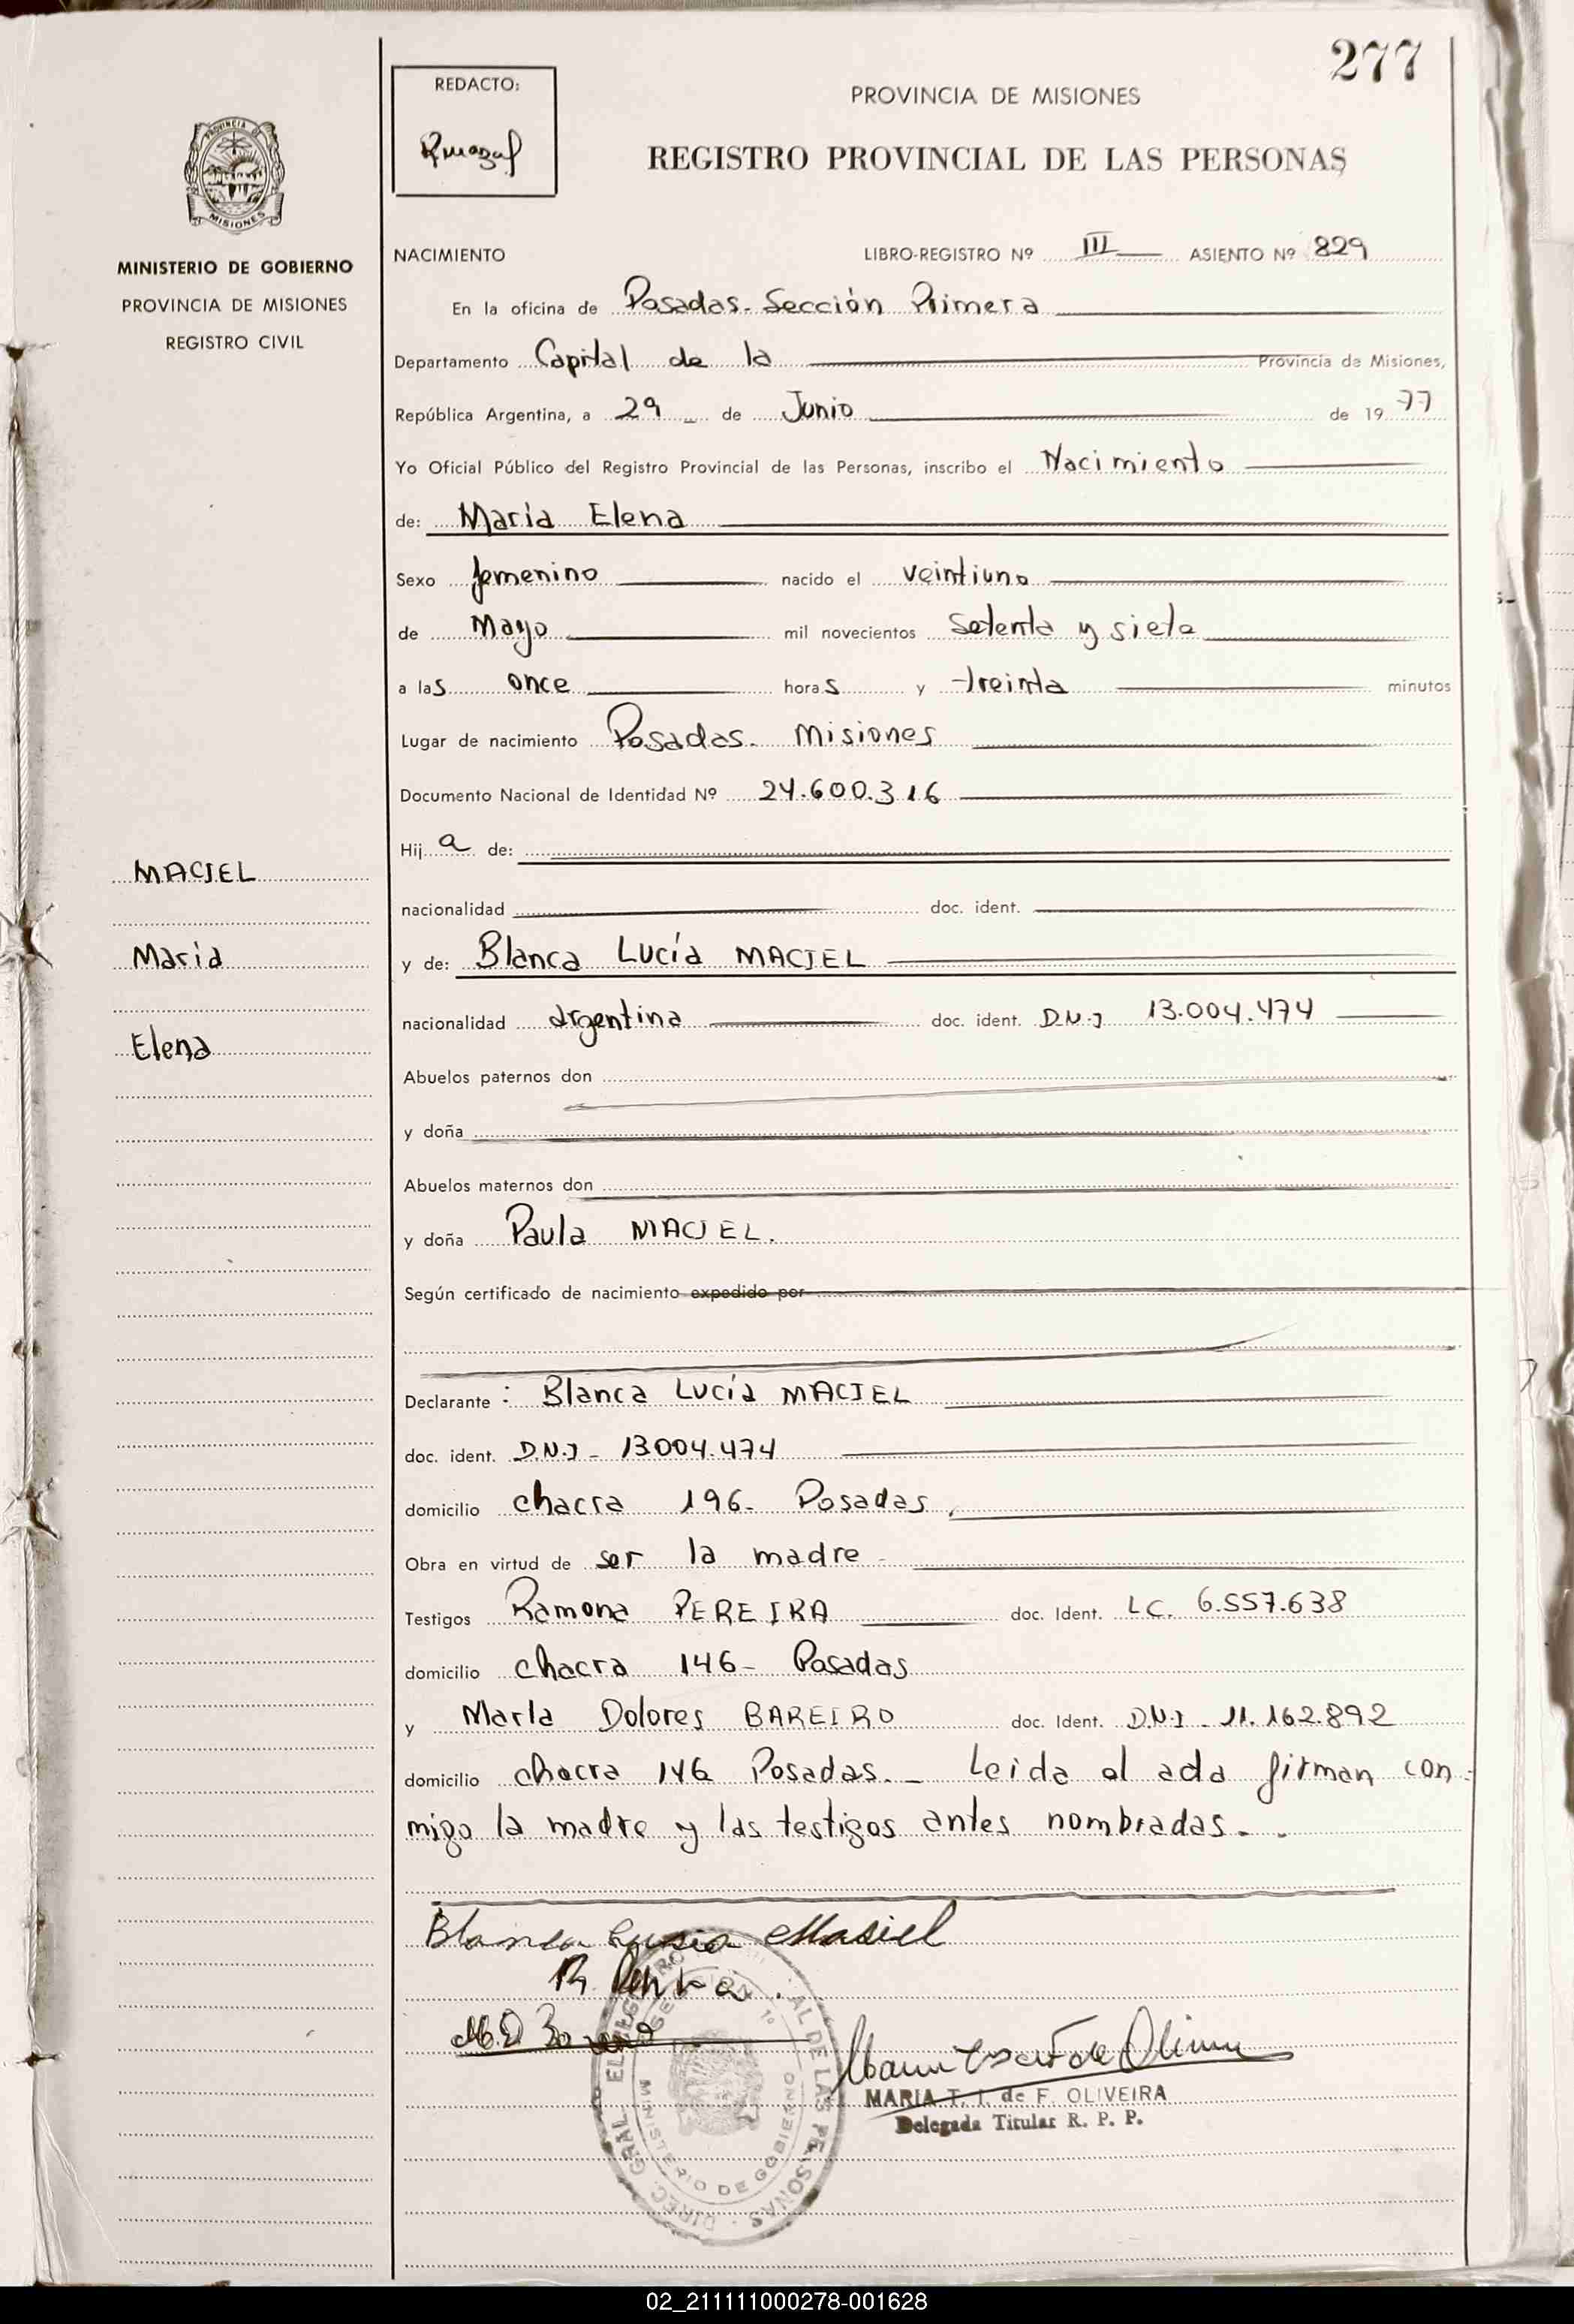 277
REDACTO:
PROVINCIA DE MISIONES
REGISTRO PROVINCIAL DE LAS PERSONAS
PROVINCIA DE
MISIONES
MINISTERIO DE GOBIERNO
PROVINCIA DE MISIONES
REGISTRO CIVIL
NACIMIENTO LIBRO-REGISTRO Nº III ASIENTO Nº 829
En la oficina de Posadas. Sección Primera
Departamento Capital de la Provincia de Misiones,
República Argentina, a 29 de Junio de 19 77
Yo Oficial Público del Registro Provincial de las Personas, inscribo el Nacimiento
de: María Elena
Sexo femenino nacido el veintiuno
de Mayo mil novecientos setenta y siete
a las once horas y treinta minutos
Lugar de nacimiento Posadas. Misiones
Documento Nacional de Identidad Nº 24.600.316
Hija de:
MACIEL
nacionalidad doc. ident.
María
y de: Blanca Lucía MACIEL
nacionalidad argentina doc. ident. D.N.I 13.004.474
Elena
Abuelos paternos don
y doña
Abuelos maternos don
y doña Paula MACIEL.
Según certificado de nacimiento expedido por
Declarante : Blanca Lucía MACIEL
doc. ident. D.N.I - 13.004.474
domicilio chacra 196- Posadas
Obra en virtud de ser la madre -
Testigos Ramona PEREIRA doc. Ident. LC. 6.557.638
domicilio chacra 146- Posadas
y María Dolores BAREIRO doc. Ident. D.N.I - 11.162.892
domicilio chacra 146 Posadas.- Leida el acta firman con-
migo la madre y las testigos antes nombradas.-
Blanca Lusia Masiel
MARIA T. I. de F. OLIVEIRA
Delegada Titular R. P. P.
MINISTERIO DE GOBIERNO
02_211111000278-001628